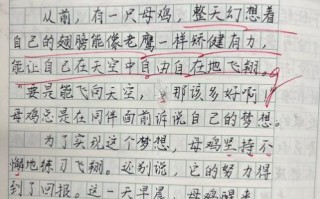 从前，有一只母鸡，整天幻想着
自己的翅膀能像老鹰一样矫健有力，
能让自己在天空中自由自在地飞翔。
“要是能飞向天空，那该多好啊！”
母鸡总是在同伴面前诉说自己的梦想。
为了实现这个梦想，母鸡坚持不
懈地练习飞翔。还别说，它的努力得
到了回报。这一天早晨，母鸡醒来